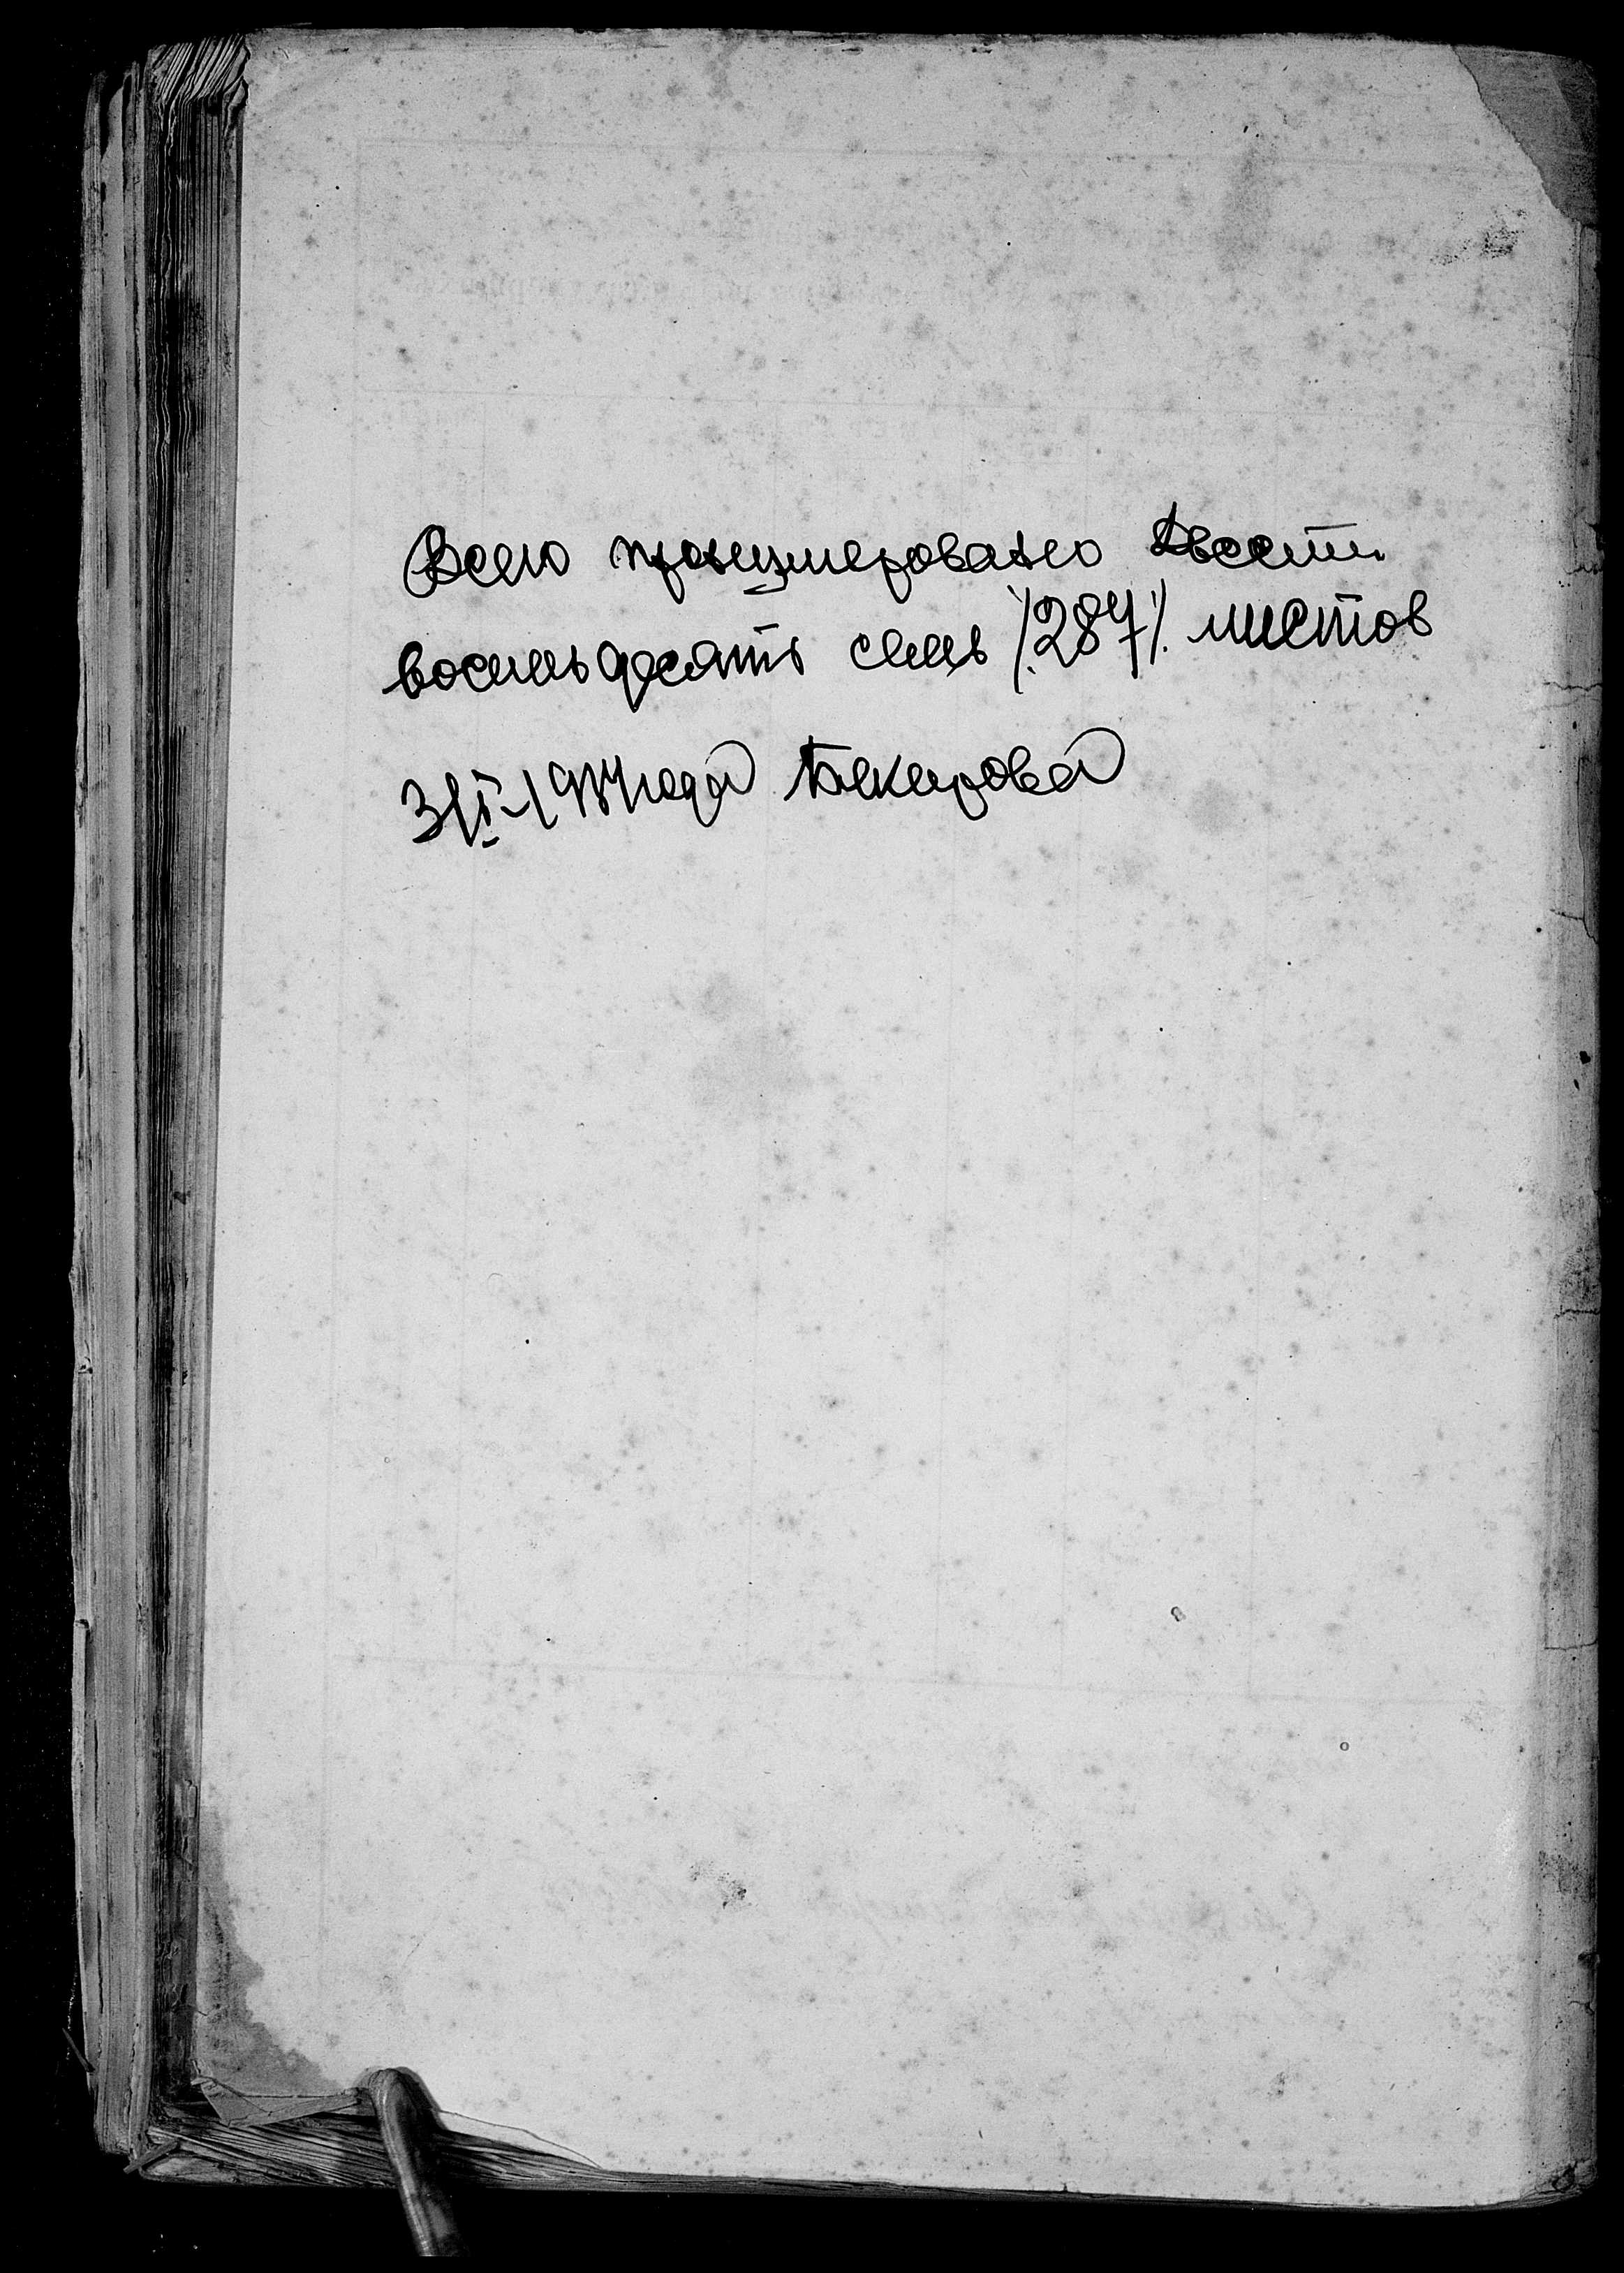 Всего пронумеровано двести
восемьдесять семь /287/. листов
года Бекирова